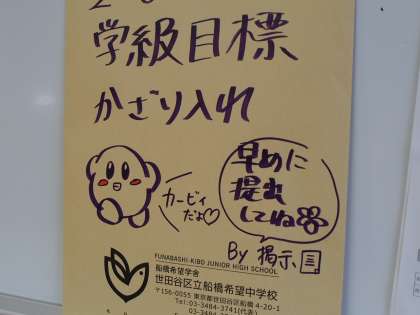 学級目標
かざり入れ
カービィ
だよ♡
早めに
提出
してね
By 掲示
FUNABASHI-KIBO JUNIOR HIGH SCHOOL
船橋希望学舎
世田谷区立船橋希望中学校
〒156-0055 東京都世田谷区船橋 4-20-1
Tel:03-3484-3741(代表)